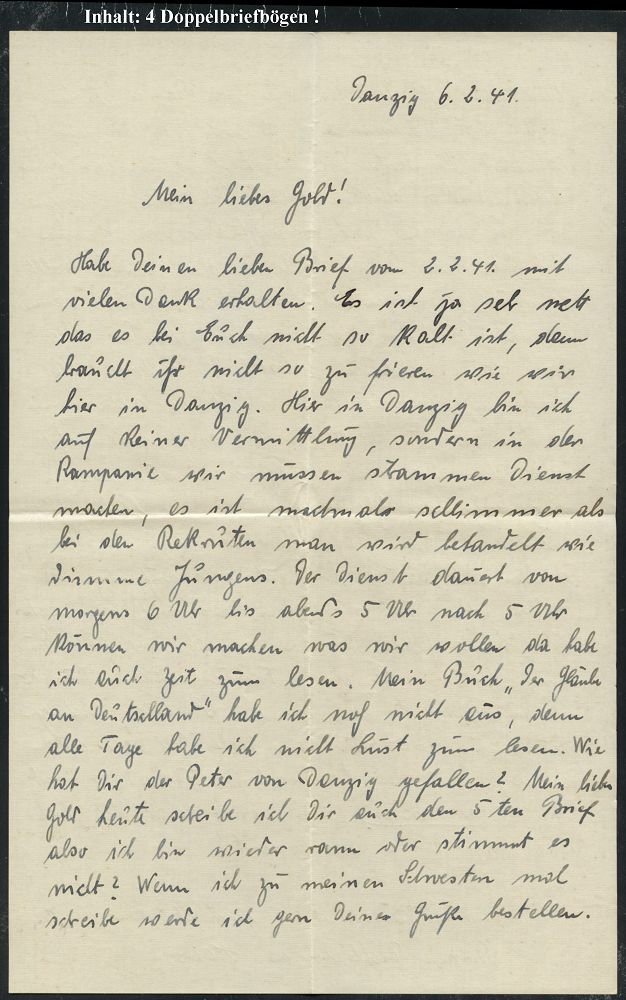 Inhalt: 4 Doppelbriefbögen !
Danzig 6. 2. 41.
Mein liebes Gold!
Habe Deinen lieben Brief vom 2.2.41. mit
vielen Dank erhalten. Es ist ja seh nett
das es bei Euch nicht so kalt ist, dann
braucht ihr nicht so zu frieren wie wir
hier in Danzig. Hier in Danzig bin ich
auf keiner Vermittlung, sondern in der
Kampanie wir müssen strammen Dienst
machen, es ist machmals schlimmer als
bei den Rekruten man wird behandelt wie
dumme Jungens. Der Dienst dauert von
morgens 6 Uhr bis abends 5 Uhr nach 5 Uhr
können wir machen was wir wollen da habe
ich auch Zeit zum lesen. Mein Buch „Der Glaube
an Deutschland" habe ich noch nicht aus, denn
alle Tage habe ich nicht Lust zum lesen. Wie
hat Dir der Peter von Danzig gefallen? Mein liebes
Gold heute schreibe ich Dir auch den 5 ten Brief
also ich bin wieder rann oder stimmt es
nicht? Wenn ich zu meinen Schwestern mal
schreibe werde ich gern Deine Grüße bestellen.